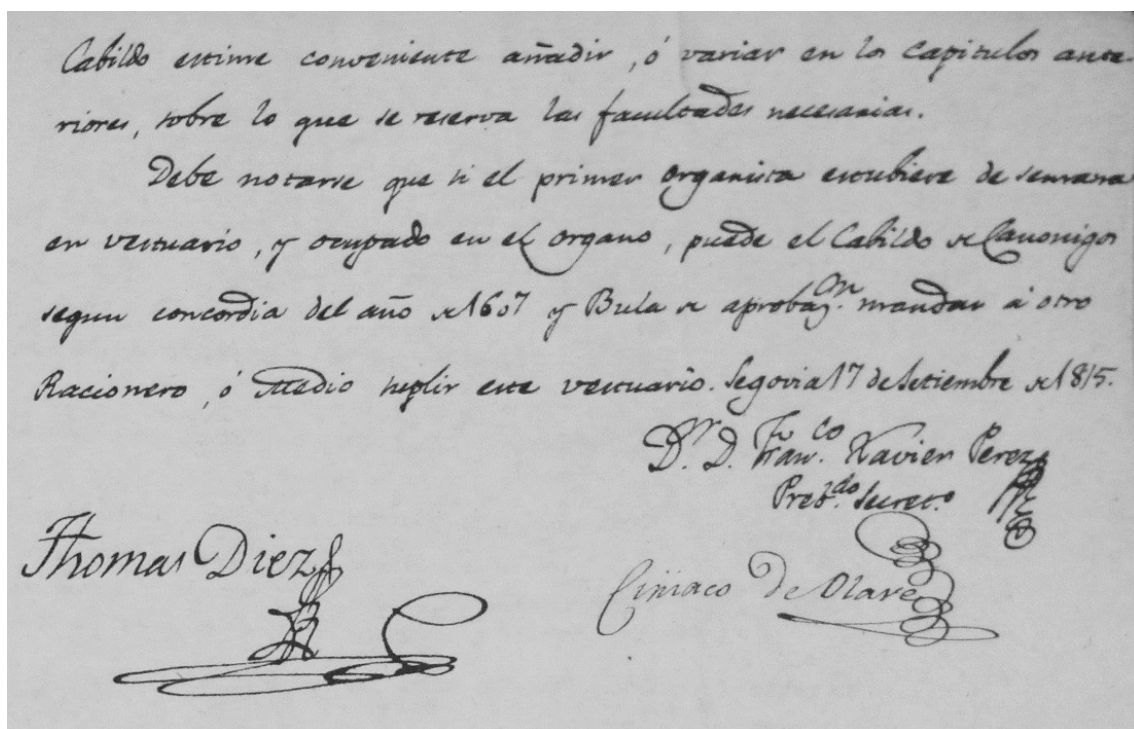 Cabildo estime conveniente añadir, ó variar en los capitulos ante-
riores, sobre lo que se reserva las facultades necesarias.
Debe notarse que si el primer organista estubiere de semana
en vestuario, y ocupado en el organo, puede el Cabildo de Canonigos
segun concordia del año de 1607 y Bula de aprobaz.on mandar á otro
Racionero, ó Medio suplir este vestuario. Segovia 17 de Setiembre de 1815.
D.r D. Fran.co Xavier Perez
Preb.do Secret.o
Thomas Diez
Ciriaco de Olave